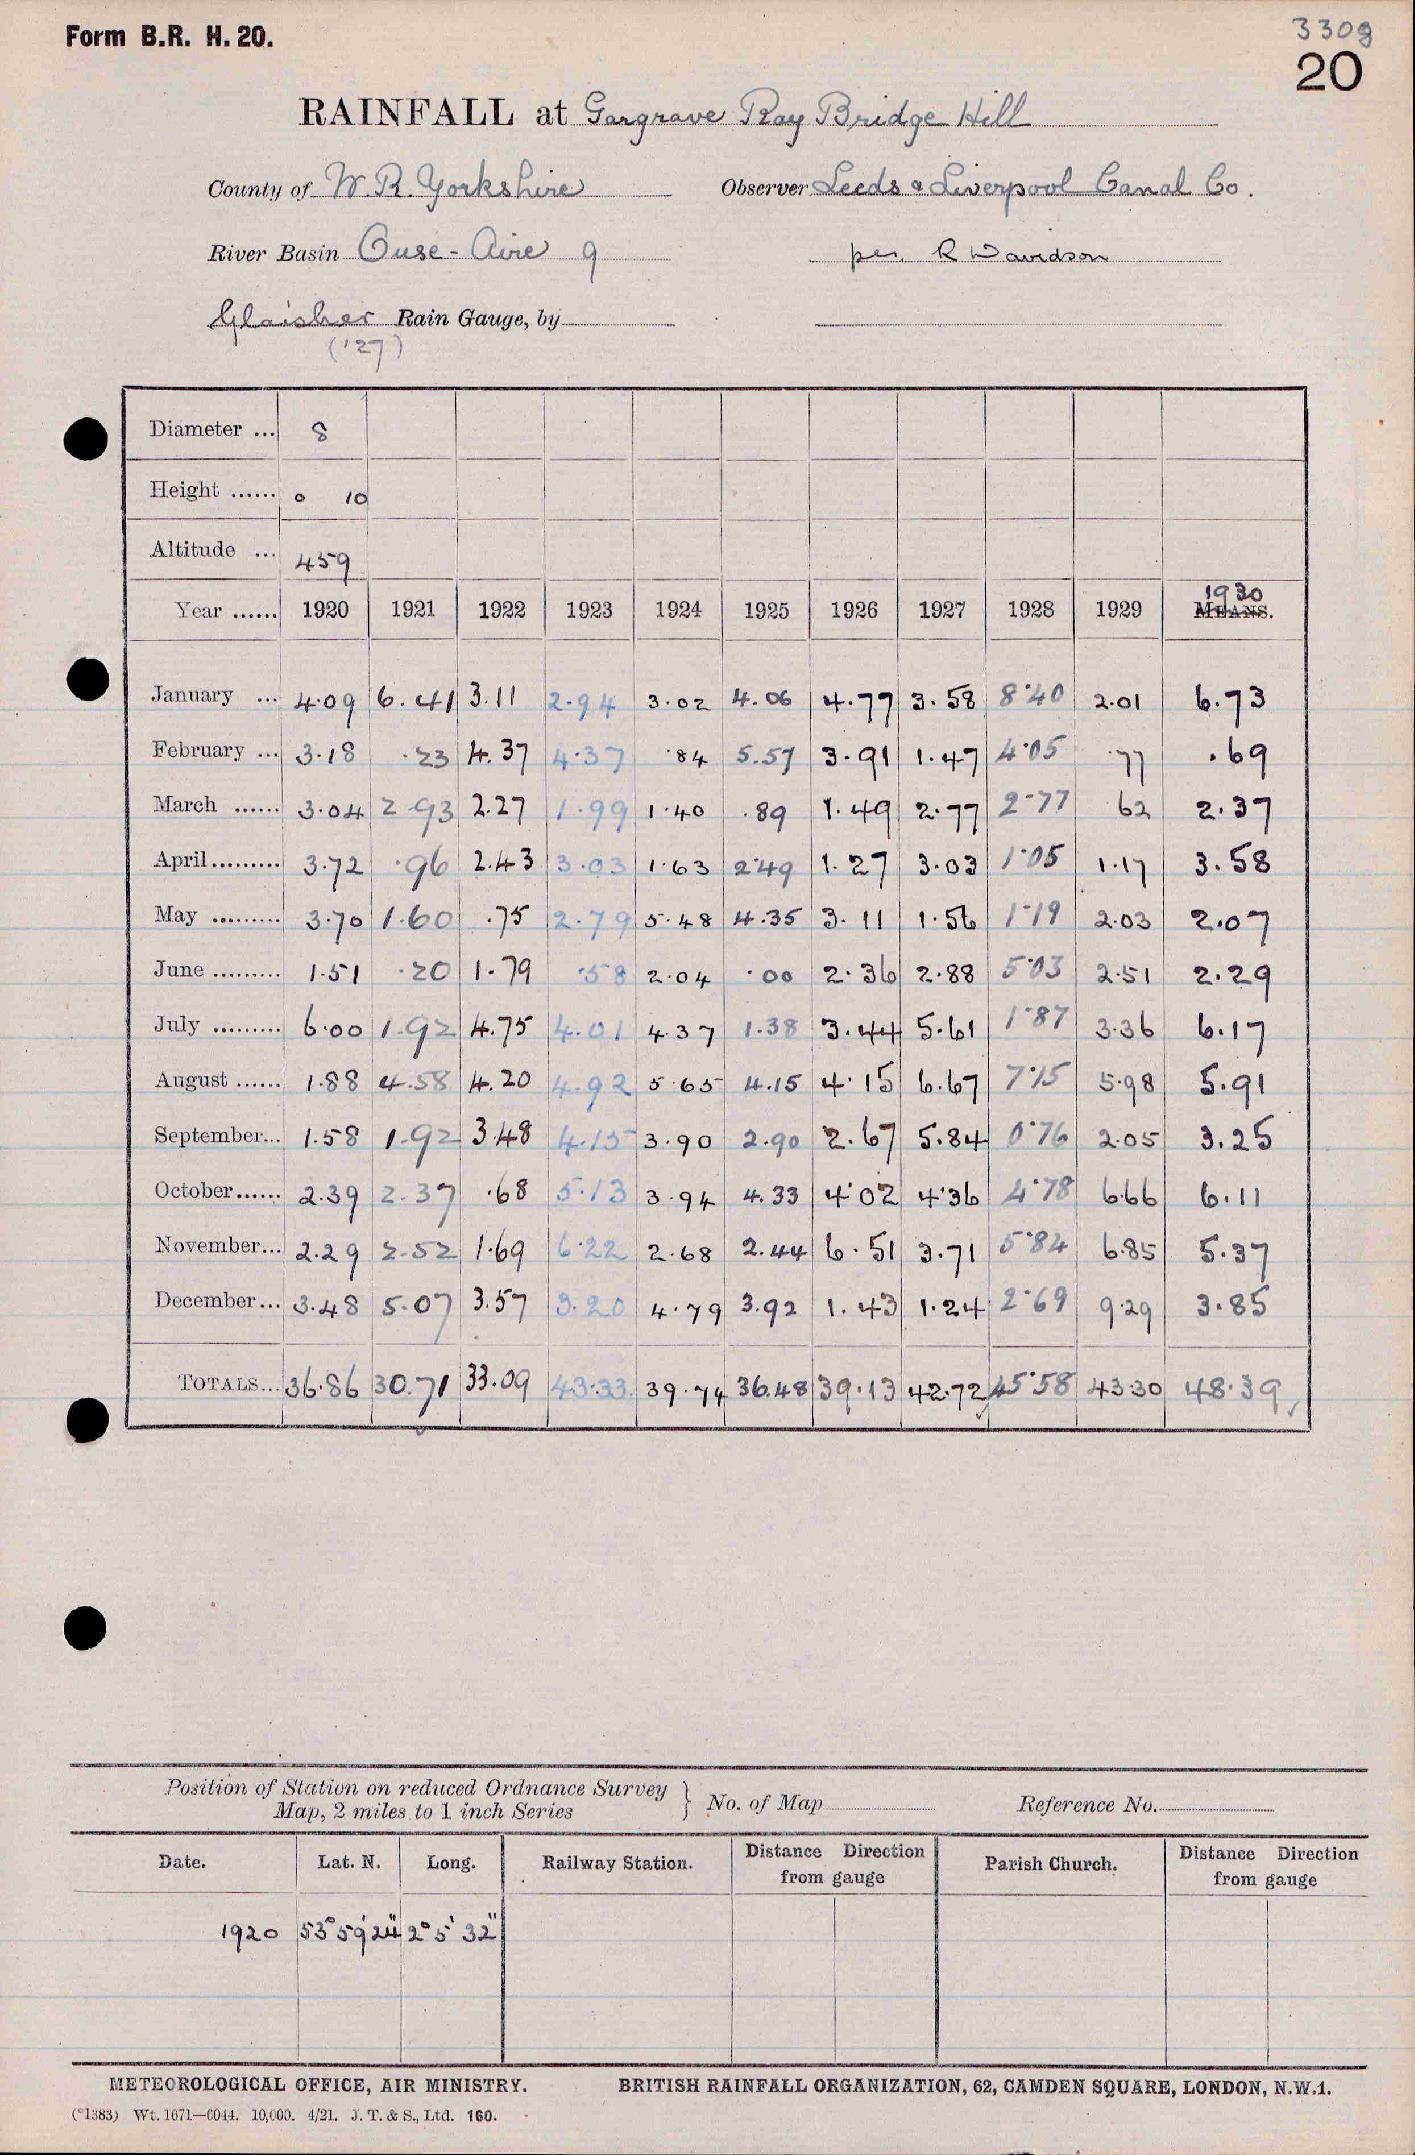 Form B.R. H. 20.
3309
20
RAINFALL at Gargrave Ray Bridge Hill
County of W. R. Yorkshire Observer Leeds & Liverpool Canal Co.
River Basin Ouse - Aire 9 per R Davidson
Glaisher Rain Gauge, by
('27)
Diameter ... 8
Height ...... 0 10
Altitude ... 459
1930
Year ...... 1920 1921 1922 1923 1924 1925 1926 1927 1928 1929 MEANS.
January ... 4.09 6.41 3.11 2.94 3.02 4.06 4.77 3.58 8.40 2.01 6.73
February ... 3.18 .23 4.37 4.37 .84 5.57 3.91 1.47 4.05 .77 .69
March ...... 3.04 2.93 2.27 1.99 1.40 .89 1.49 2.77 2.77 62 2.37
April......... 3.72 .96 2.43 3.03 1.63 2.49 1.27 3.03 1.05 1.17 3.58
May ......... 3.70 1.60 .75 2.79 5.48 4.35 3.11 1.56 1.19 2.03 2.07
June ......... 1.51 .20 1.79 .58 2.04 .00 2.36 2.88 5.03 2.51 2.29
July ......... 6.00 1.92 4.75 4.01 4.37 1.38 3.44 5.61 1.87 3.36 6.17
August ...... 1.88 4.58 4.20 4.92 5.65 4.15 4.15 6.67 7.15 5.98 5.91
September... 1.58 1.92 3.48 4.15 3.90 2.90 2.67 5.84 0.76 2.05 3.25
October...... 2.39 2.37 .68 5.13 3.94 4.33 4.02 4.36 4.78 6.66 6.11
November... 2.29 2.52 1.69 6.22 2.68 2.44 6.51 3.71 5.84 6.85 5.37
December... 3.48 5.07 3.57 3.20 4.79 3.92 1.43 1.24 2.69 9.29 3.85
TOTALS... 36.86 30.71 33.09 43.33 39.74 36.48 39.13 42.72 45.58 43.30 48.39
Position of Station on reduced Ordnance Survey
Map, 2 miles to 1 inch Series } No. of Map Reference No.
Date. Lat. N. Long. Railway Station. Distance Direction from gauge Parish Church. Distance Direction from gauge
1920 53° 59' 24" 2° 5' 32"
METEOROLOGICAL OFFICE, AIR MINISTRY. BRITISH RAINFALL ORGANIZATION, 62, CAMDEN SQUARE, LONDON, N.W.1.
(*1383) Wt. 1671—6044. 10,000. 4/21. J. T. & S., Ltd. 160.